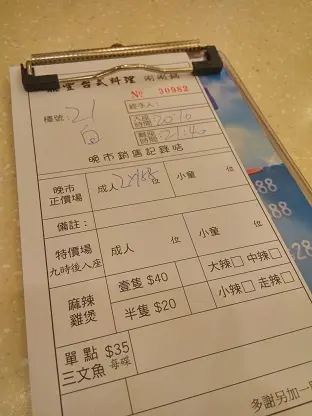 台式料理 涮涮鍋
No 30982
檯號: 21
經手人:
入座時間: 20:10
離座時間: 21:40
晚市銷售記錄咭
晚市正價場 成人 2x188 位 小童 位
備註:
特價場 九時後入座 成人 位 小童 位
麻辣雞煲 壹隻 $40 大辣□ 中辣□
半隻 $20 小辣□ 走辣□
單點 $35
三文魚 每碟
多謝另加一
88
88
28